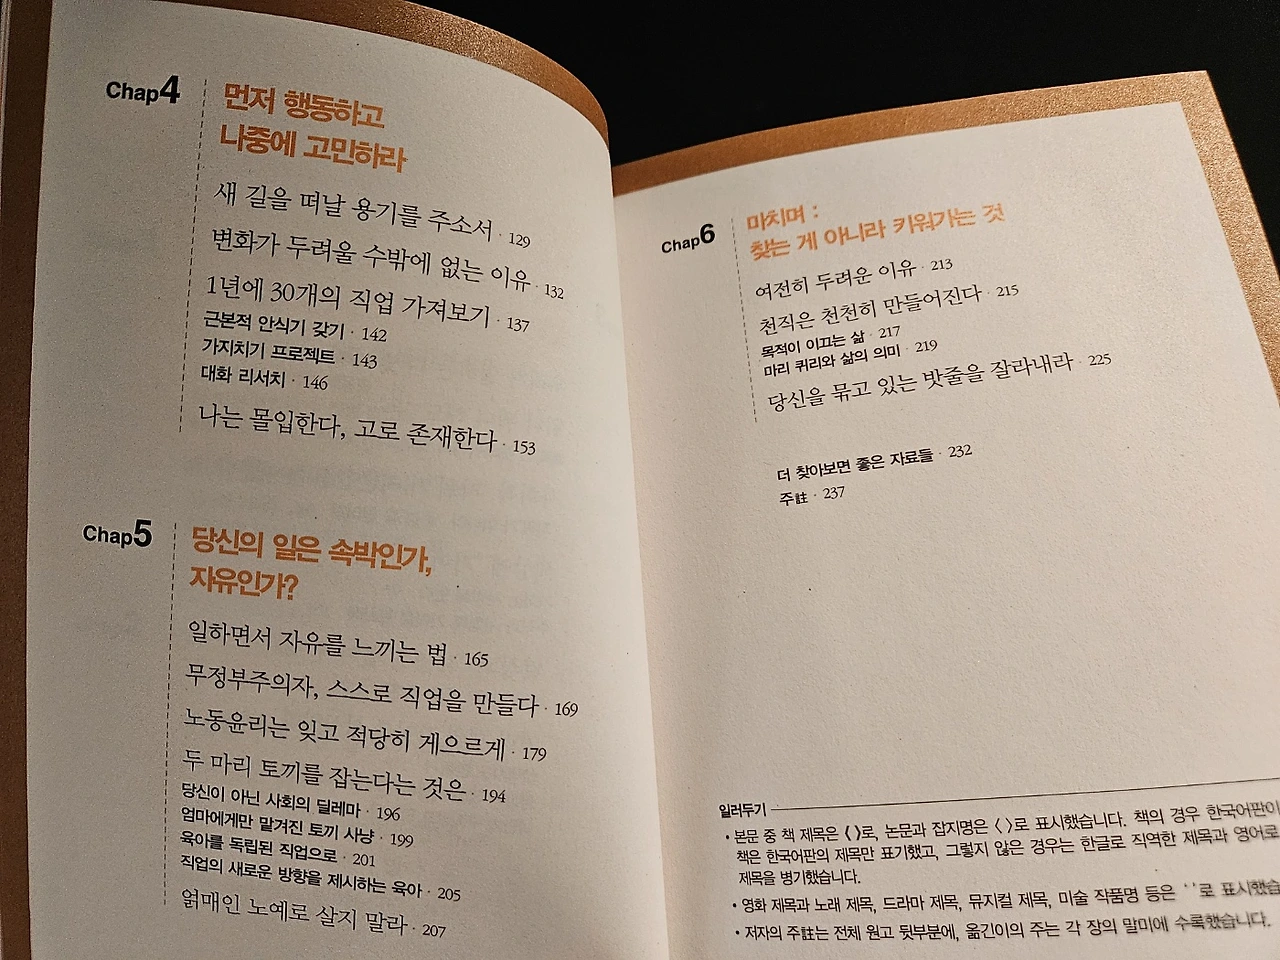 Chap4
먼저 행동하고
나중에 고민하라
새 길을 떠날 용기를 주소서 · 129
변화가 두려울 수밖에 없는 이유 · 132
1년에 30개의 직업 가져보기 · 137
근본적 안식기 갖기 · 142
가지치기 프로젝트 · 143
대화 리서치 · 146
나는 몰입한다, 고로 존재한다 · 153
Chap5
당신의 일은 속박인가,
자유인가?
일하면서 자유를 느끼는 법 · 165
무정부주의자, 스스로 직업을 만들다 · 169
노동윤리는 잊고 적당히 게으르게 · 179
두 마리 토끼를 잡는다는 것은 · 194
당신이 아닌 사회의 딜레마 · 196
엄마에게만 맡겨진 토끼 사냥 · 199
육아를 독립된 직업으로 · 201
직업의 새로운 방향을 제시하는 육아 · 205
얽매인 노예로 살지 말라 · 207
Chap6
마치며 :
찾는 게 아니라 키워가는 것
여전히 두려운 이유 · 213
천직은 천천히 만들어진다 · 215
목적이 이끄는 삶 · 217
마리 퀴리와 삶의 의미 · 219
당신을 묶고 있는 밧줄을 잘라내라 · 225
더 찾아보면 좋은 자료들 · 232
주註 · 237
일러두기
• 본문 중 책 제목은 《 》로, 논문과 잡지명은 〈 〉로 표시했습니다. 책의 경우 한국어판이
책은 한국어판의 제목만 표기했고, 그렇지 않은 경우는 한글로 직역한 제목과 영어로
제목을 병기했습니다.
• 영화 제목과 노래 제목, 드라마 제목, 뮤지컬 제목, 미술 작품명 등은 ' '로 표시했습
• 저자의 주註는 전체 원고 뒷부분에, 옮긴이의 주는 각 장의 말미에 수록했습니다.